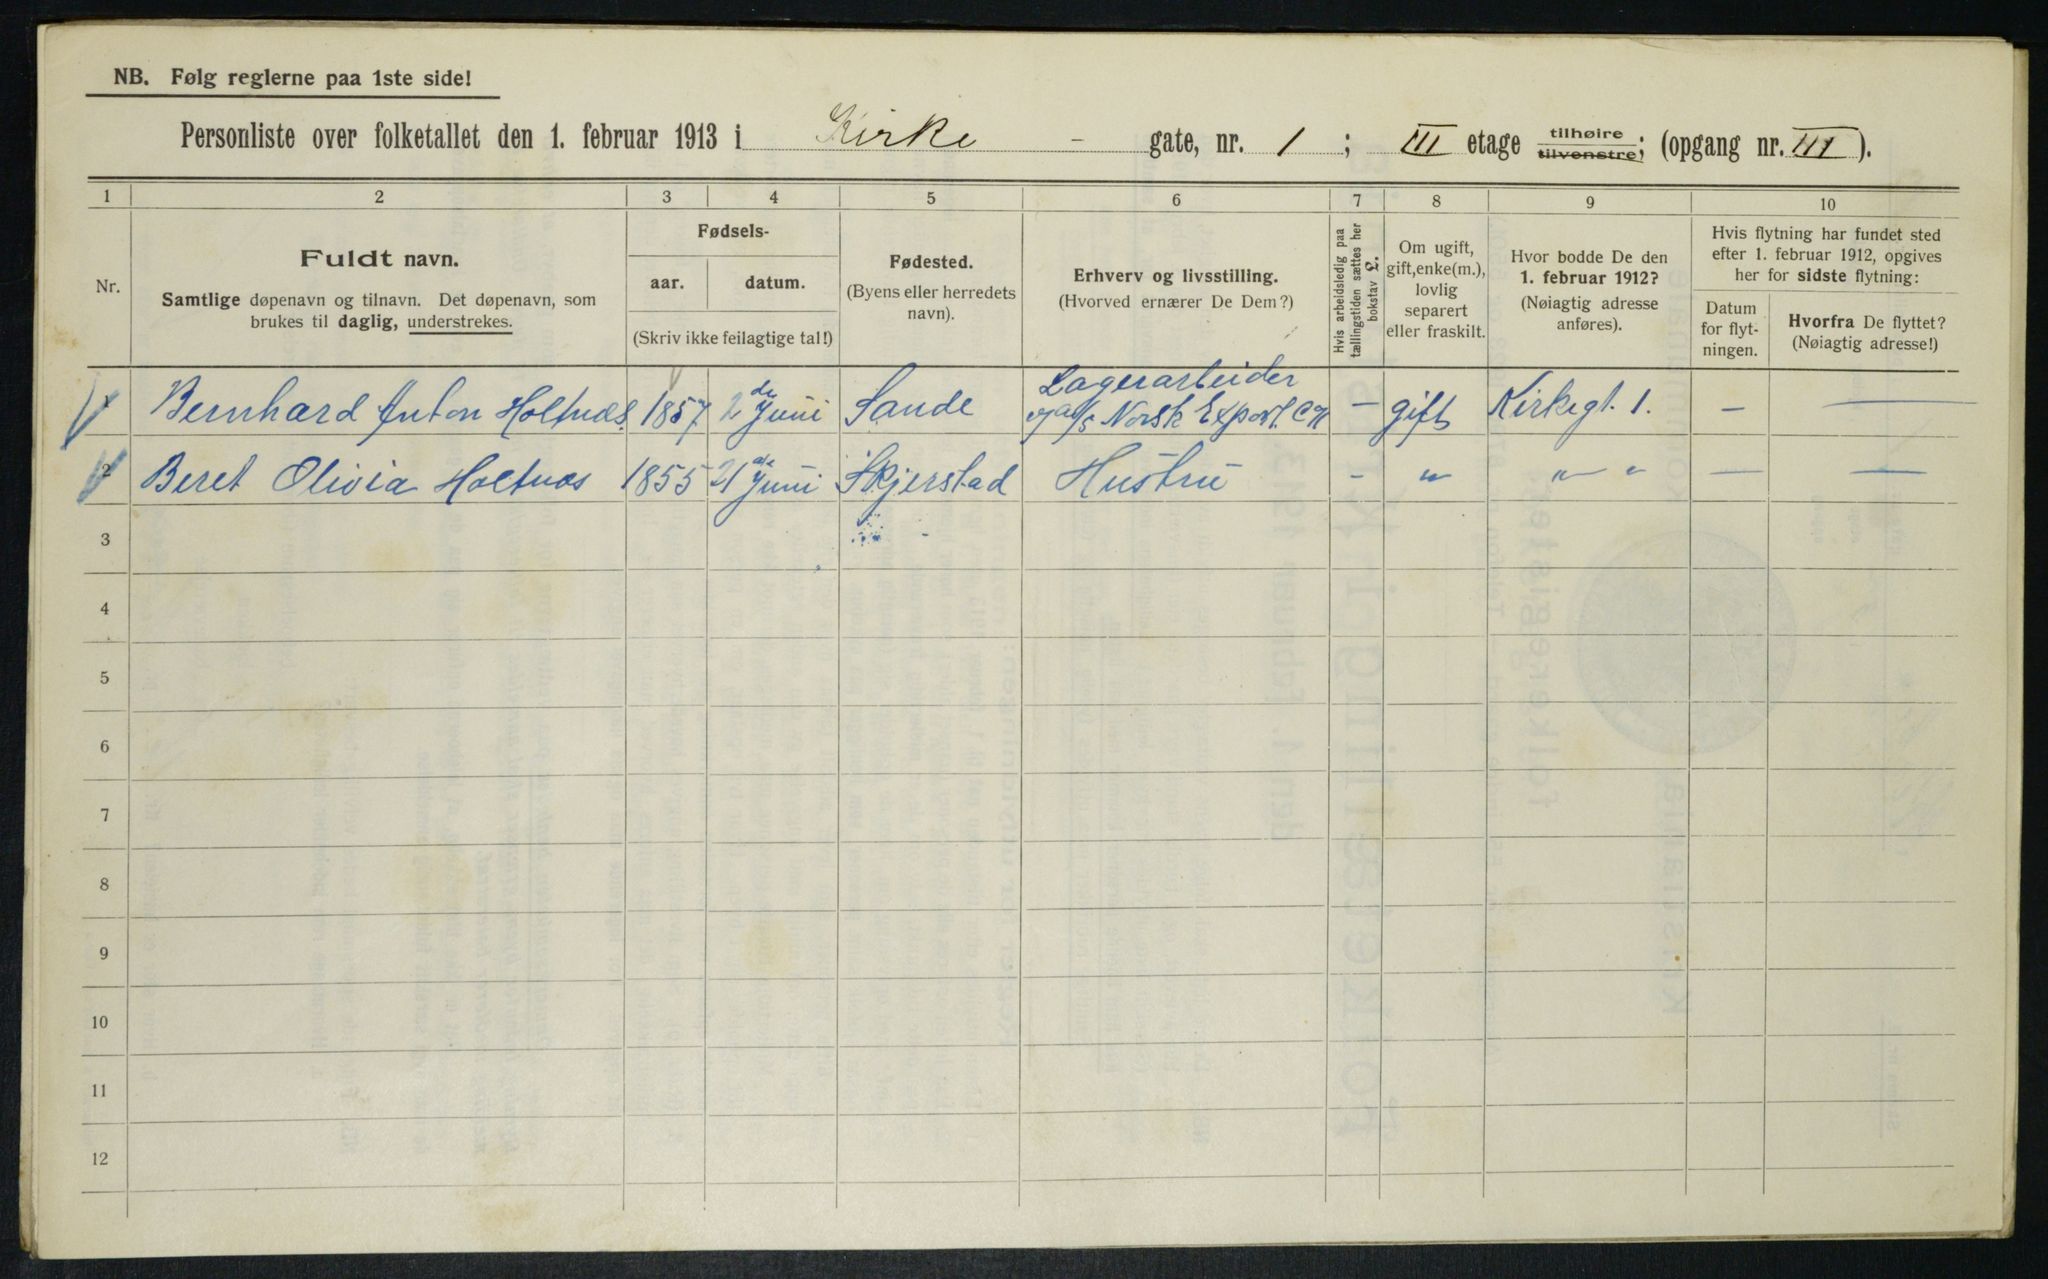 NB. Følg reglerne paa 1ste side!
Personliste over folketallet den 1. februar 1913 i Kirke - gate, nr. 1 ; III etage tilhøire tilvenstre; (opgang nr. III ).
1 2 3 4 5 6 7 8 9 10
Nr.
Fuldt navn.
Samtlige døpenavn og tilnavn. Det døpenavn, som
brukes til daglig, understrekes.
Fødsels-
aar. datum.
(Skriv ikke feilagtige tal!)
Fødested.
(Byens eller herredets
navn).
Erhverv og livsstilling.
(Hvorved ernærer De Dem?)
Hvis arbeidsledig paa
tællingstiden sættes her
bokstav L.
Om ugift,
gift, enke(m.),
lovlig
separert
eller fraskilt.
Hvor bodde De den
1. februar 1912?
(Nøiagtig adresse
anføres).
Hvis flytning har fundet sted
efter 1. februar 1912, opgives
her for sidste flytning:
Datum
for flyt-
ningen.
Hvorfra De flyttet?
(Nøiagtig adresse!)
1 Bernhard Anton Holtnæs 1857 2de Juni Sande Lagerarbeider
A/S Norsk Export - gift Kirkegt. 1. - —
2 Beret Olivia Holtnæs 1855 21de Juni Skjerstad Hustru - " " " — —
3
4
5
6
7
8
9
10
11
12